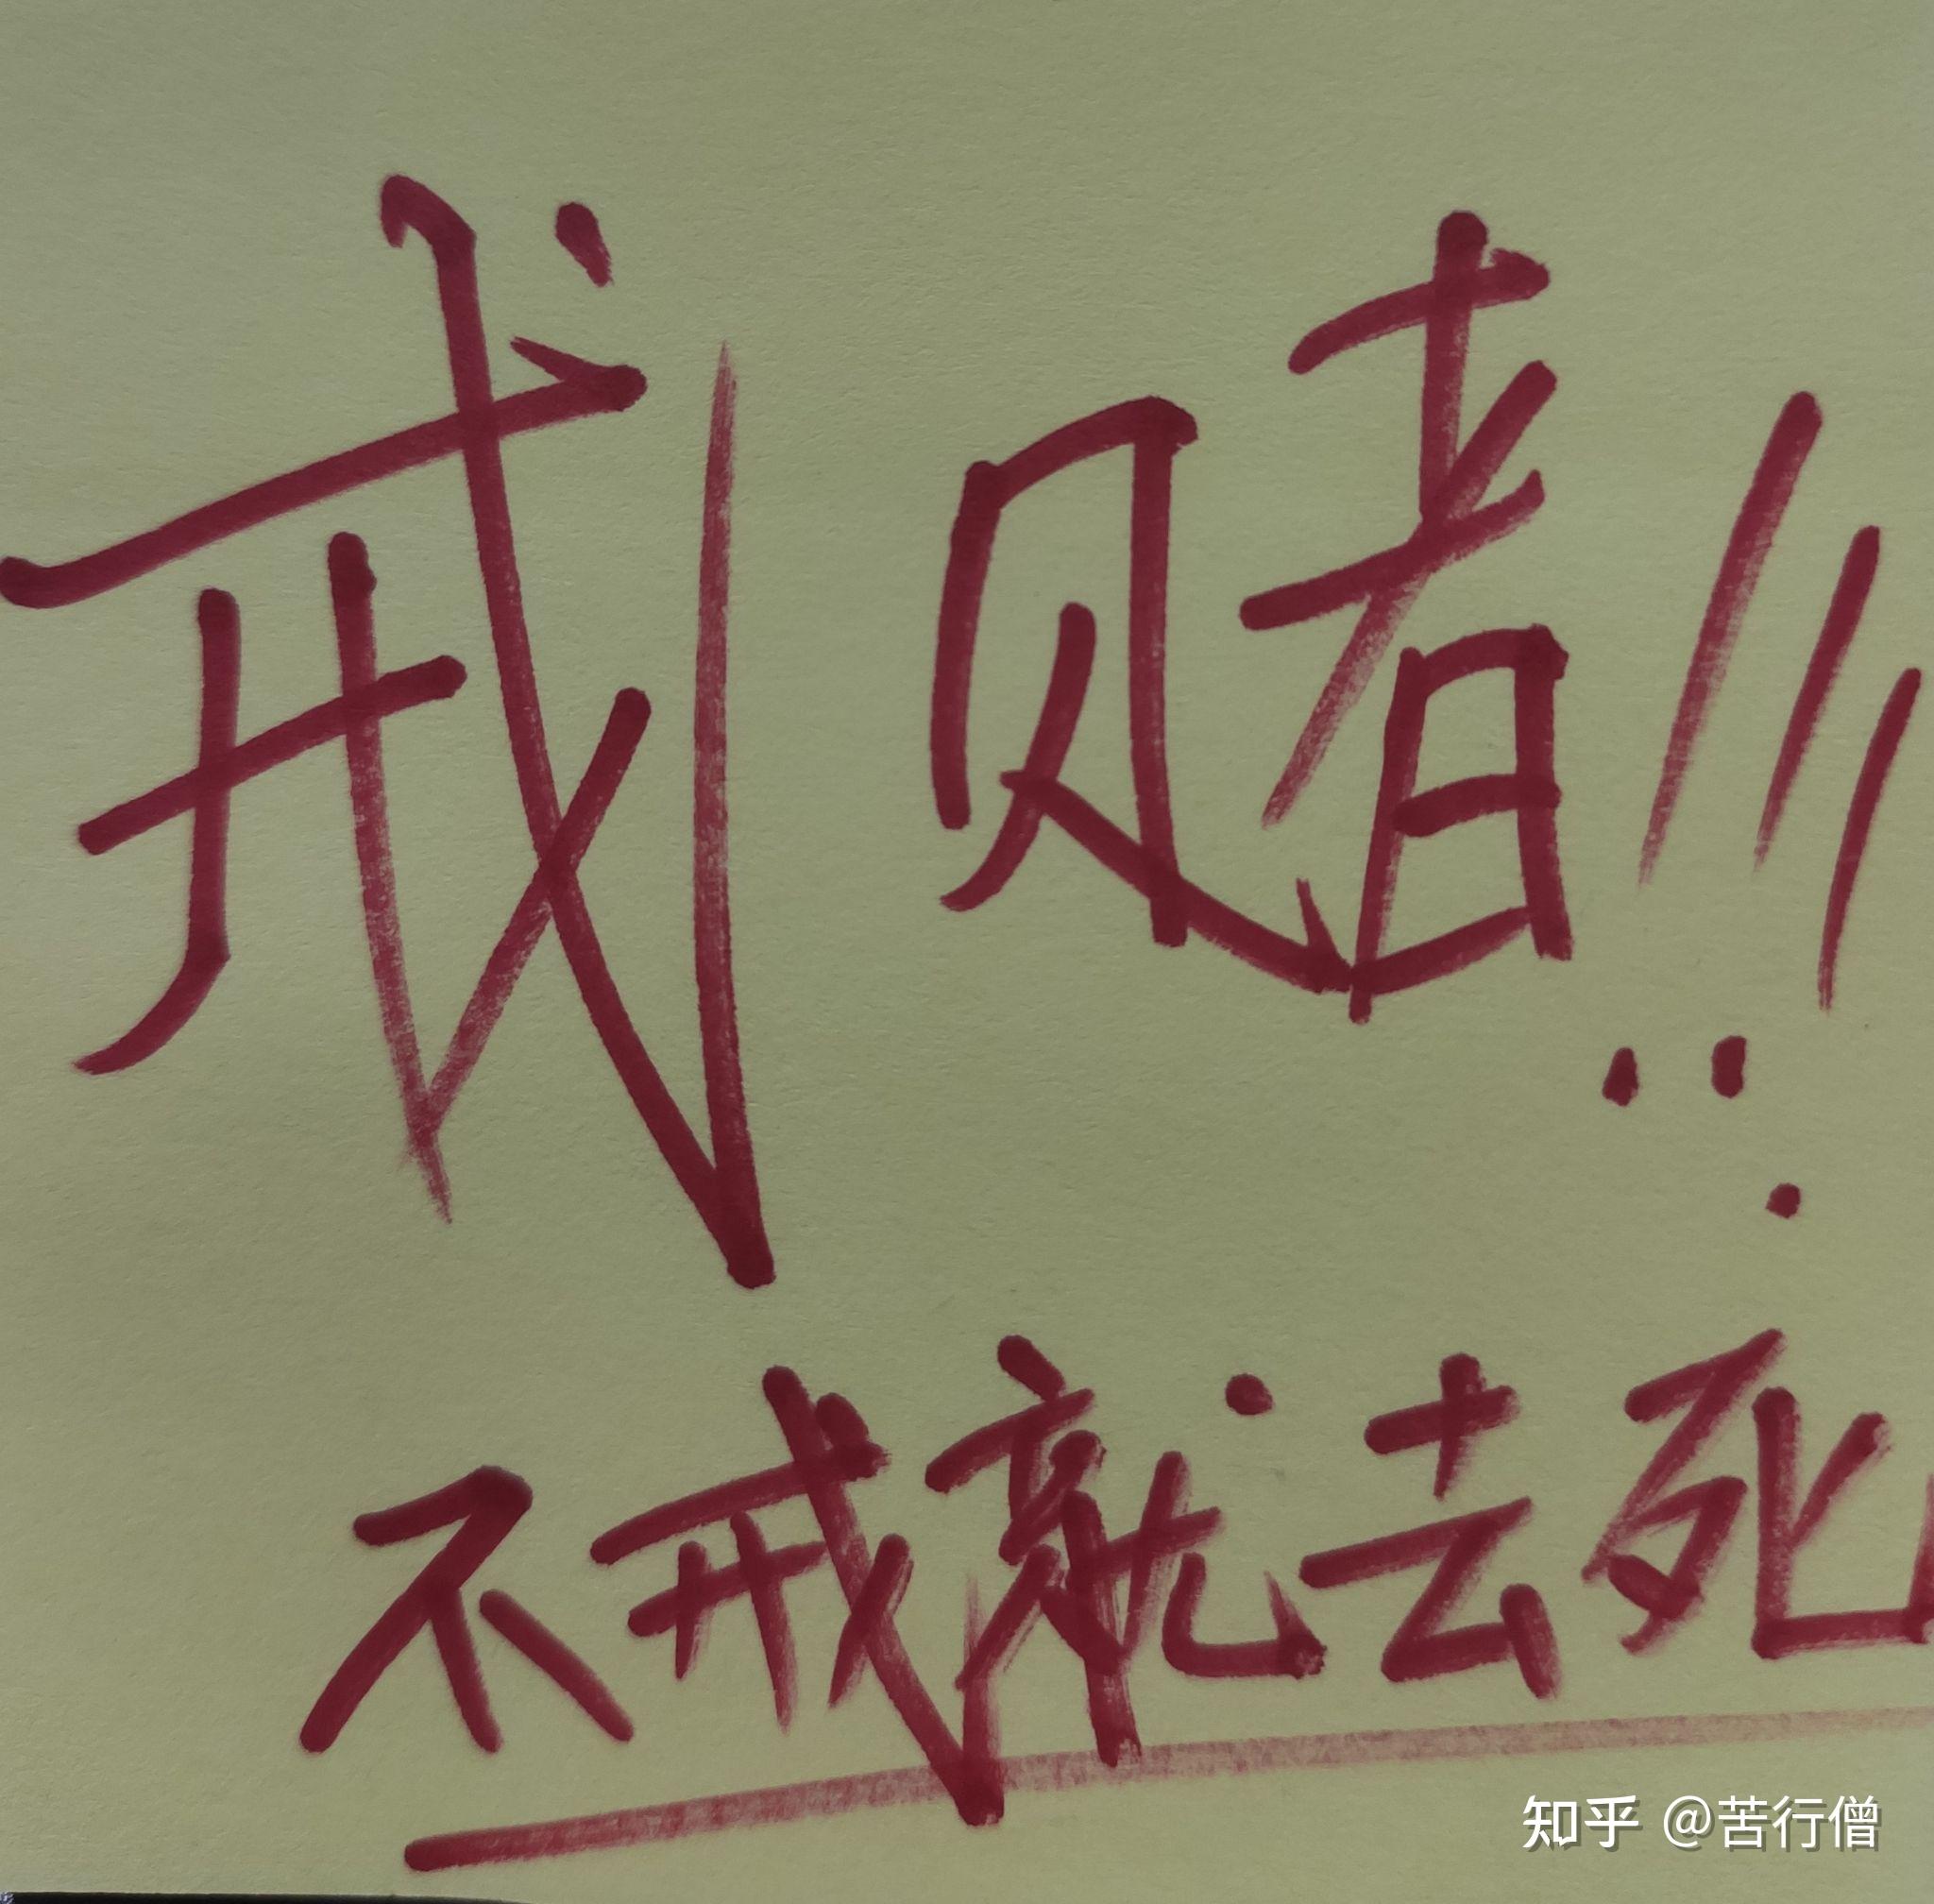 戒赌!!!
不戒就去死
知乎 @苦行僧